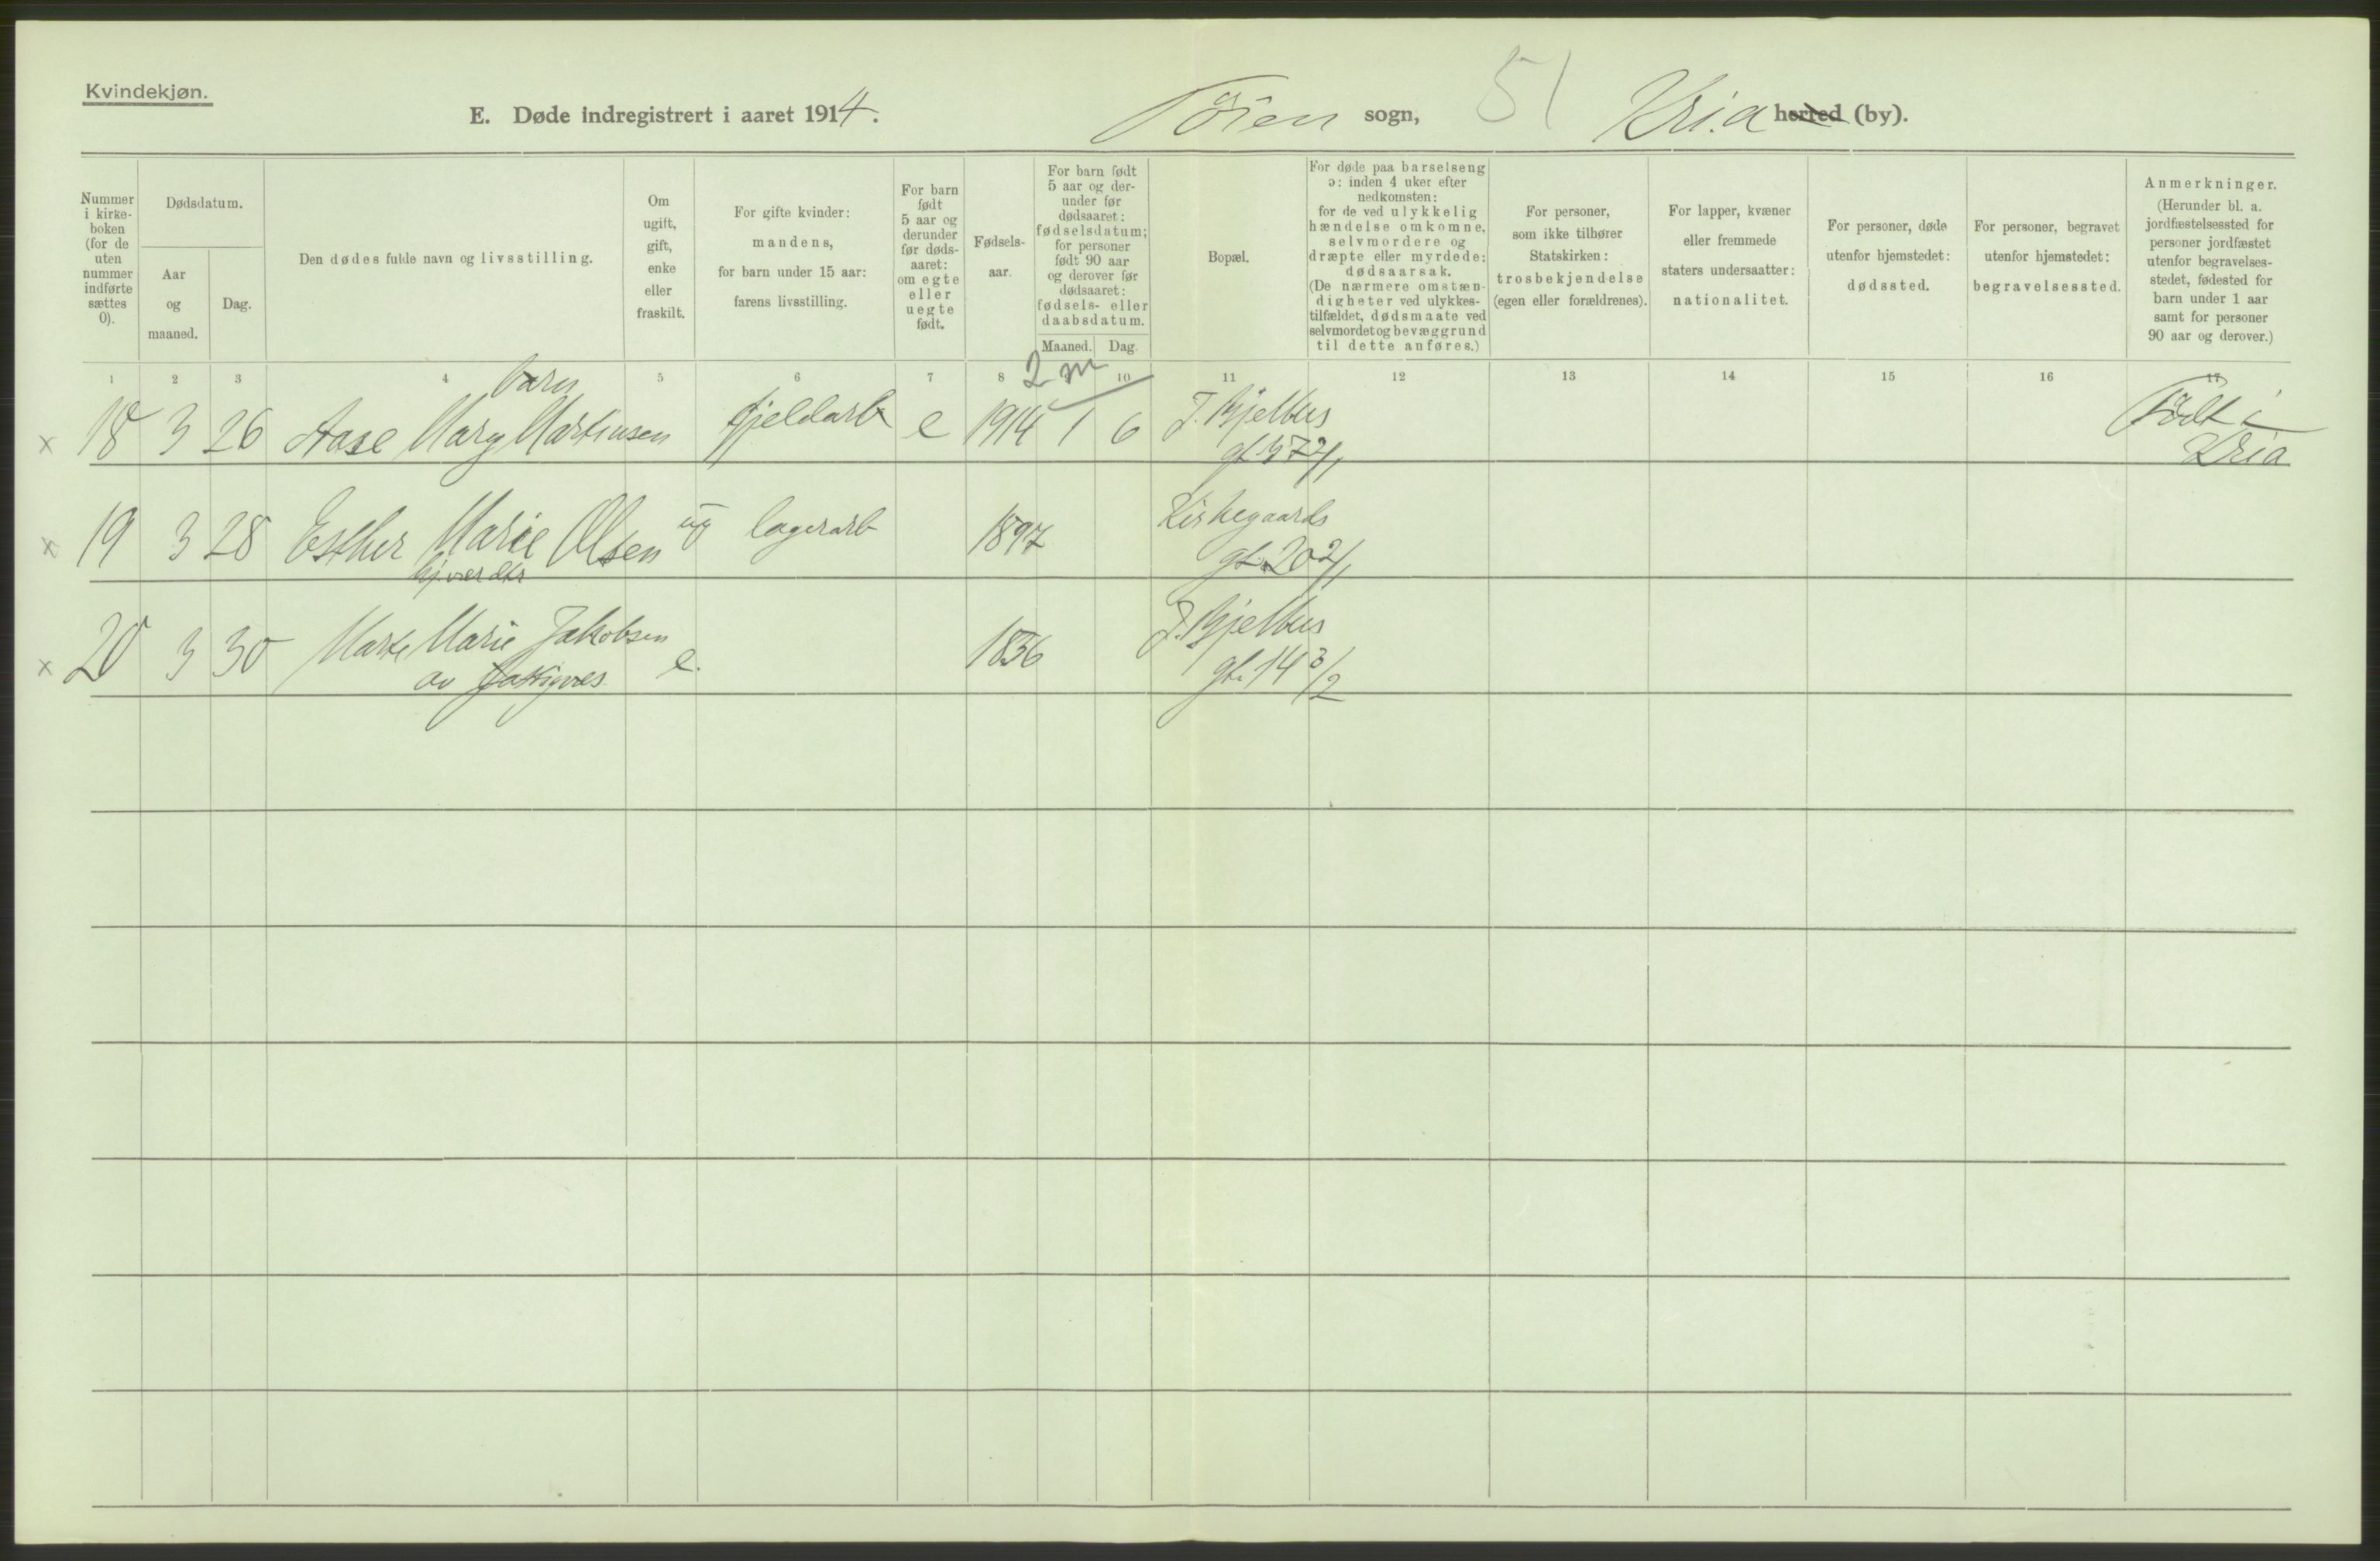 Kvindekjøn.
E. Døde indregistrert i aaret 1914. Töien sogn, 51 Kria herred (by).
Nummer i kirke- boken (for de uten nummer indførte sættes 0).
Dødsdatum.
Aar og maaned.
Dag.
Den dødes fulde navn og livsstilling.
Om ugift, gift, enke eller fraskilt.
For gifte kvinder: mandens, for barn under 15 aar: farens livsstilling.
For barn født 5 aar og derunder før døds- aaret: om egte eller uegte født.
Fødsels- aar.
For barn født 5 aar og der- under før dødsaaret: fødselsdatum; for personer født 90 aar og derover før dødsaaret: fødsels- eller daabsdatum.
Maaned. Dag.
Bopæl.
For døde paa barselseng ɔ: inden 4 uker efter nedkomsten: for de ved ulykkelig hændelse omkomne, selvmordere og dræpte eller myrdede: dødsaarsak. (De nærmere omstæn- digheter ved ulykkes- tilfældet, dødsmaate ved selvmordet og bevæggrund til dette anføres.)
For personer, som ikke tilhører Statskirken: trosbekjendelse (egen eller forældrenes).
For lapper, kvæner eller fremmede staters undersaatter: nationalitet.
For personer, døde utenfor hjemstedet: dødssted.
For personer, begravet utenfor hjemstedet: begravelsessted.
Anmerkninger. (Herunder bl. a. jordfæstelsessted for personer jordfæstet utenfor begravelses- stedet, fødested for barn under 1 aar samt for personer 90 aar og derover.)
1 2 3 4 5 6 7 8 2 m 10 11 12 13 14 15 16 17
barn
x 18 3 26 Aase Mary Martinsen fjeldarb e 1914 1 6 J. Bjelkes Født i
gt 57 2/1 Kria
x 19 3 28 Esther Marie Olsen ug lagerarb 1897 Kirkegaards
hjver dtr gt. 20 2/1
x 20 3 30 Marte Marie Jakobsen e. 1836 J. Bjelkes
av Fattigves. gt. 14 3/2